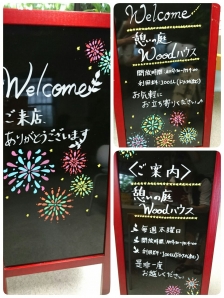 Welcome
ご来店
ありがとうございます
Welcome
憩いの庭
Woodハウス
開放時間
お気軽に
お立ち寄りください
〈ご案内〉
憩いの庭
Woodハウス
毎週木曜日
開放時間
利用料
是非一度
お越しください